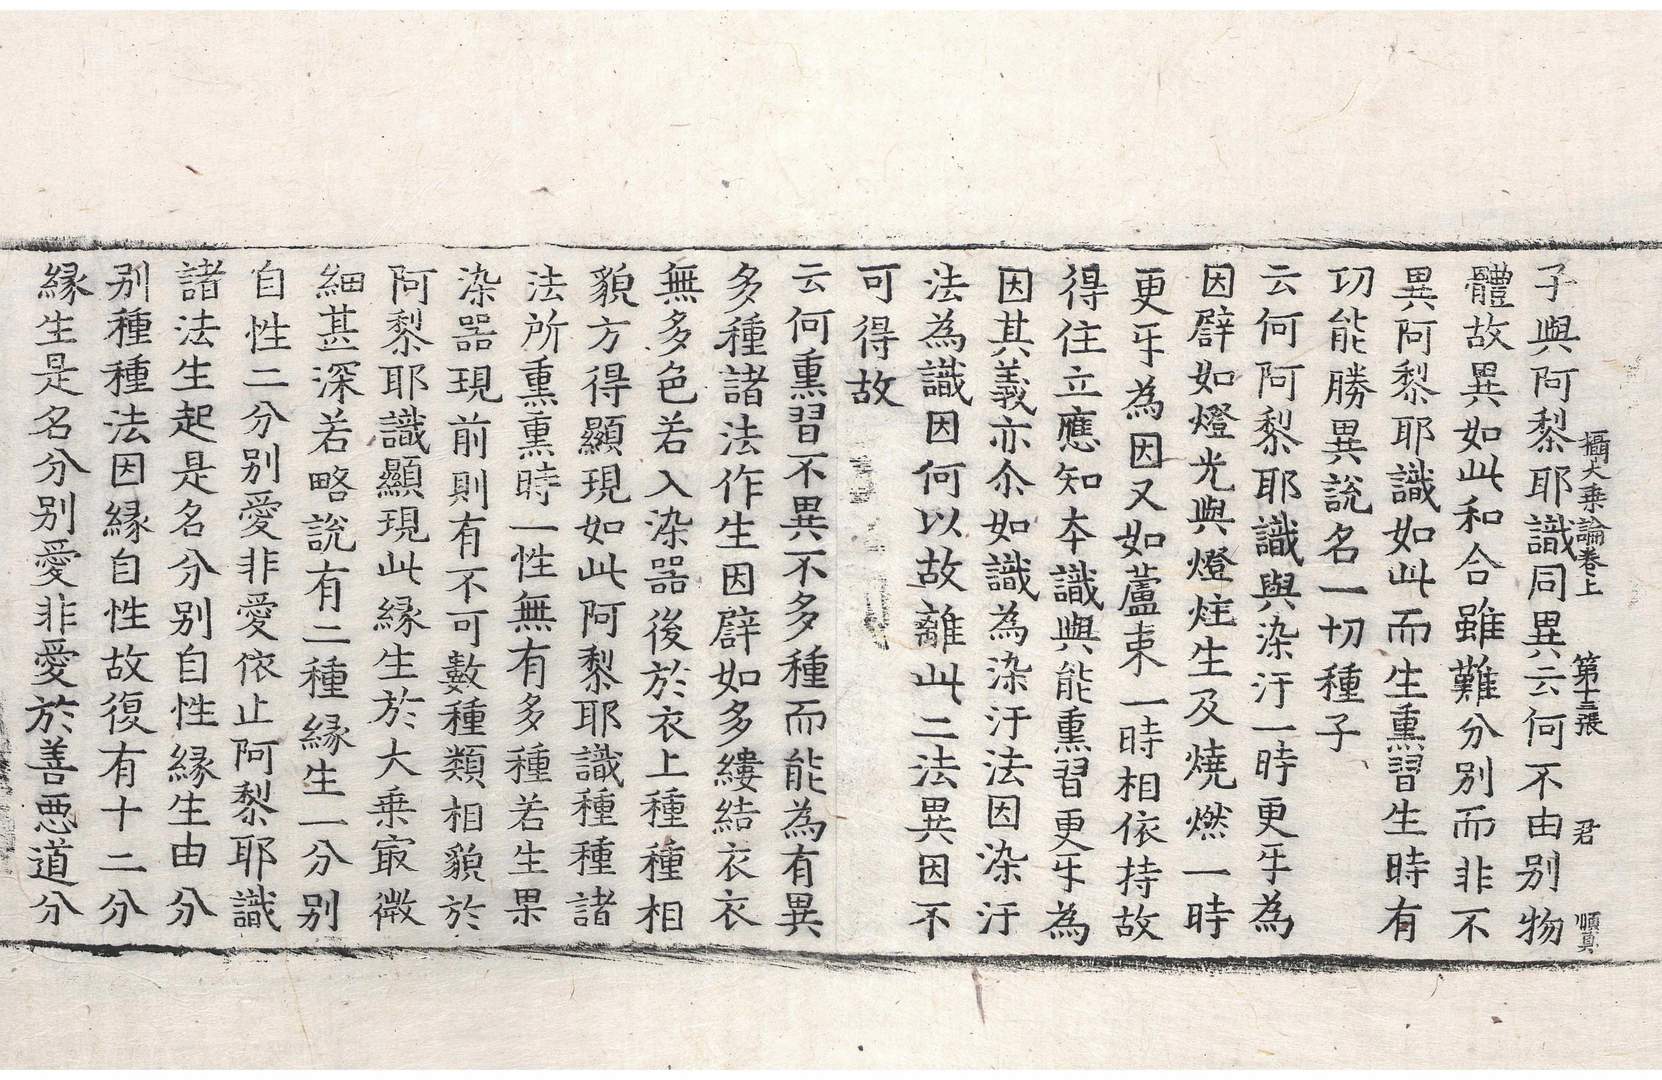 攝大乗論卷上 第十三張 君 順真
子與阿黎耶識同異云何不由別物
體故異如此和合雖難分別而非不
異阿黎耶識如此而生熏習生時有
功能勝異說名一切種子
云何阿黎耶識與染汙一時更㸦為
因譬如燈光與燈炷生及燒燃一時
更㸦為因又如蘆束一時相依持故
得住立應知本識與能熏習更㸦為
因其義亦尒如識為染汙法因染汙
法為識因何以故離此二法異因不
可得故
云何熏習不異不多種而能為有異
多種諸法作生因譬如多縷結衣衣
無多色若入染器後於衣上種種相
貌方得顯現如此阿黎耶識種種諸
法所熏熏時一性無有多種若生果
染器現前則有不可數種類相貌於
阿黎耶識顯現此縁生於大乗㝡微
細甚深若略說有二種縁生一分別
自性二分別愛非愛依止阿黎耶識
諸法生起是名分別自性縁生由分
別種種法因縁自性故復有十二分
縁生是名分別愛非愛於善惡道分